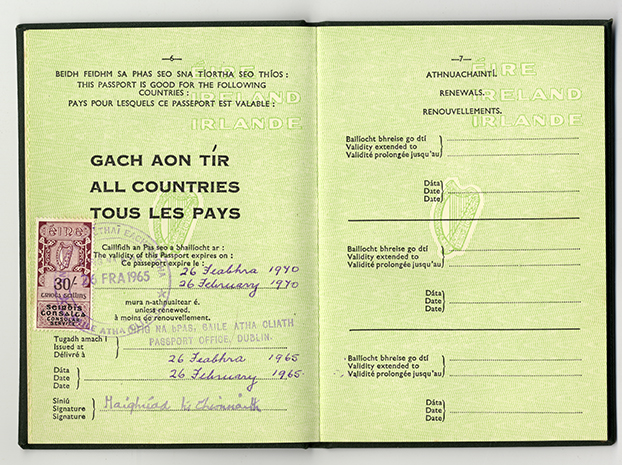 —6—
BEIDH FEIDHM SA PHAS SEO SNA TÍORTHA SEO THÍOS :
THIS PASSPORT IS GOOD FOR THE FOLLOWING
COUNTRIES :
PAYS POUR LESQUELS CE PASSEPORT EST VALABLE :
ÉIRE
IRELAND
IRLANDE
GACH AON TÍR
ALL COUNTRIES
TOUS LES PAYS
Cailfidh an Pas seo a bhailíocht ar :
The validity of this Passport expires on :
Ce passeport expire le :
26 Feabhra 1970
26 February 1970
mura n-athnuaitear é.
unless renewed.
à moins de renouvellement.
éire
30/-
seirbís
consalta
CONSULAR
SERVICE
26 FRA 1965
OIFIG NA bPAS, BAILE ATHA CLIATH
PASSPORT OFFICE, DUBLIN.
Tugadh amach i
Issued at
Délivré à
26 Feabhra 1965
26 February 1965
Dáta
Date
Date
Síniú
Signature
Signature
Maighréad
—7—
ATHNUACHAINTÍ.
RENEWALS.
RENOUVELLEMENTS.
ÉIRE
IRELAND
IRLANDE
Bailíocht bhreise go dtí
Validity extended to
Validité prolongée jusqu'au
Dáta
Date
Date
Bailíocht bhreise go dtí
Validity extended to
Validité prolongée jusqu'au
Dáta
Date
Date
Bailíocht bhreise go dtí
Validity extended to
Validité prolongée jusqu'au
Dáta
Date
Date